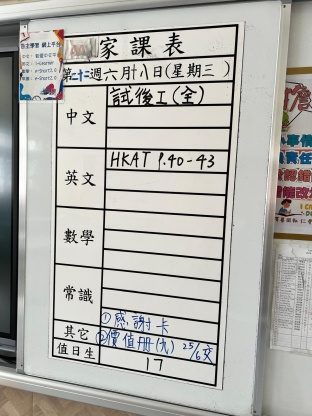 家課表
第二十二週六月十八日(星期三)
中文
試後工(全)
英文
HKAT P.40-43
數學
常識
其它
①感謝卡
②價值冊(九) 25/6交
值日生
17
自主學習 網上平台